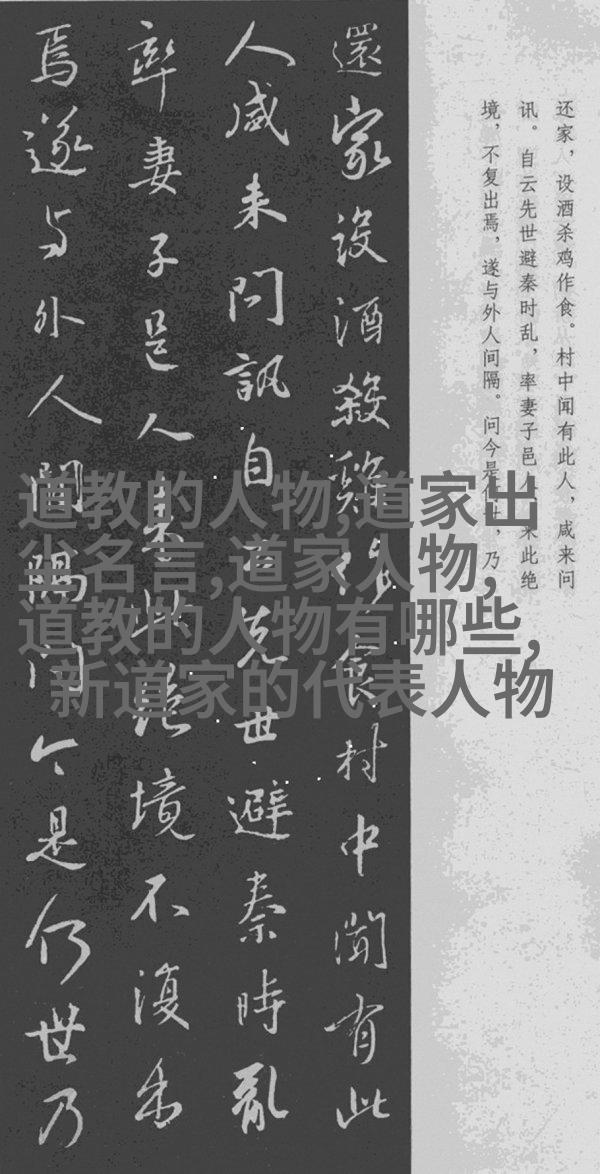 还家，设酒杀鸡作食。村中闻有此人，咸来问
讯。自云先世避秦时乱，率妻子邑人来此绝
境，不复出焉，遂与外人间隔。问今是何世，乃
還家設酒殺雞作食村中聞有此
人咸来問訊自云先世避秦時亂
率妻子邑人来此絶境不復出
焉遂与外人間隔问今是何世乃
道教的人物,道家出
尘名言,道家人物,
道教的人物有哪些,
新道家的代表人物